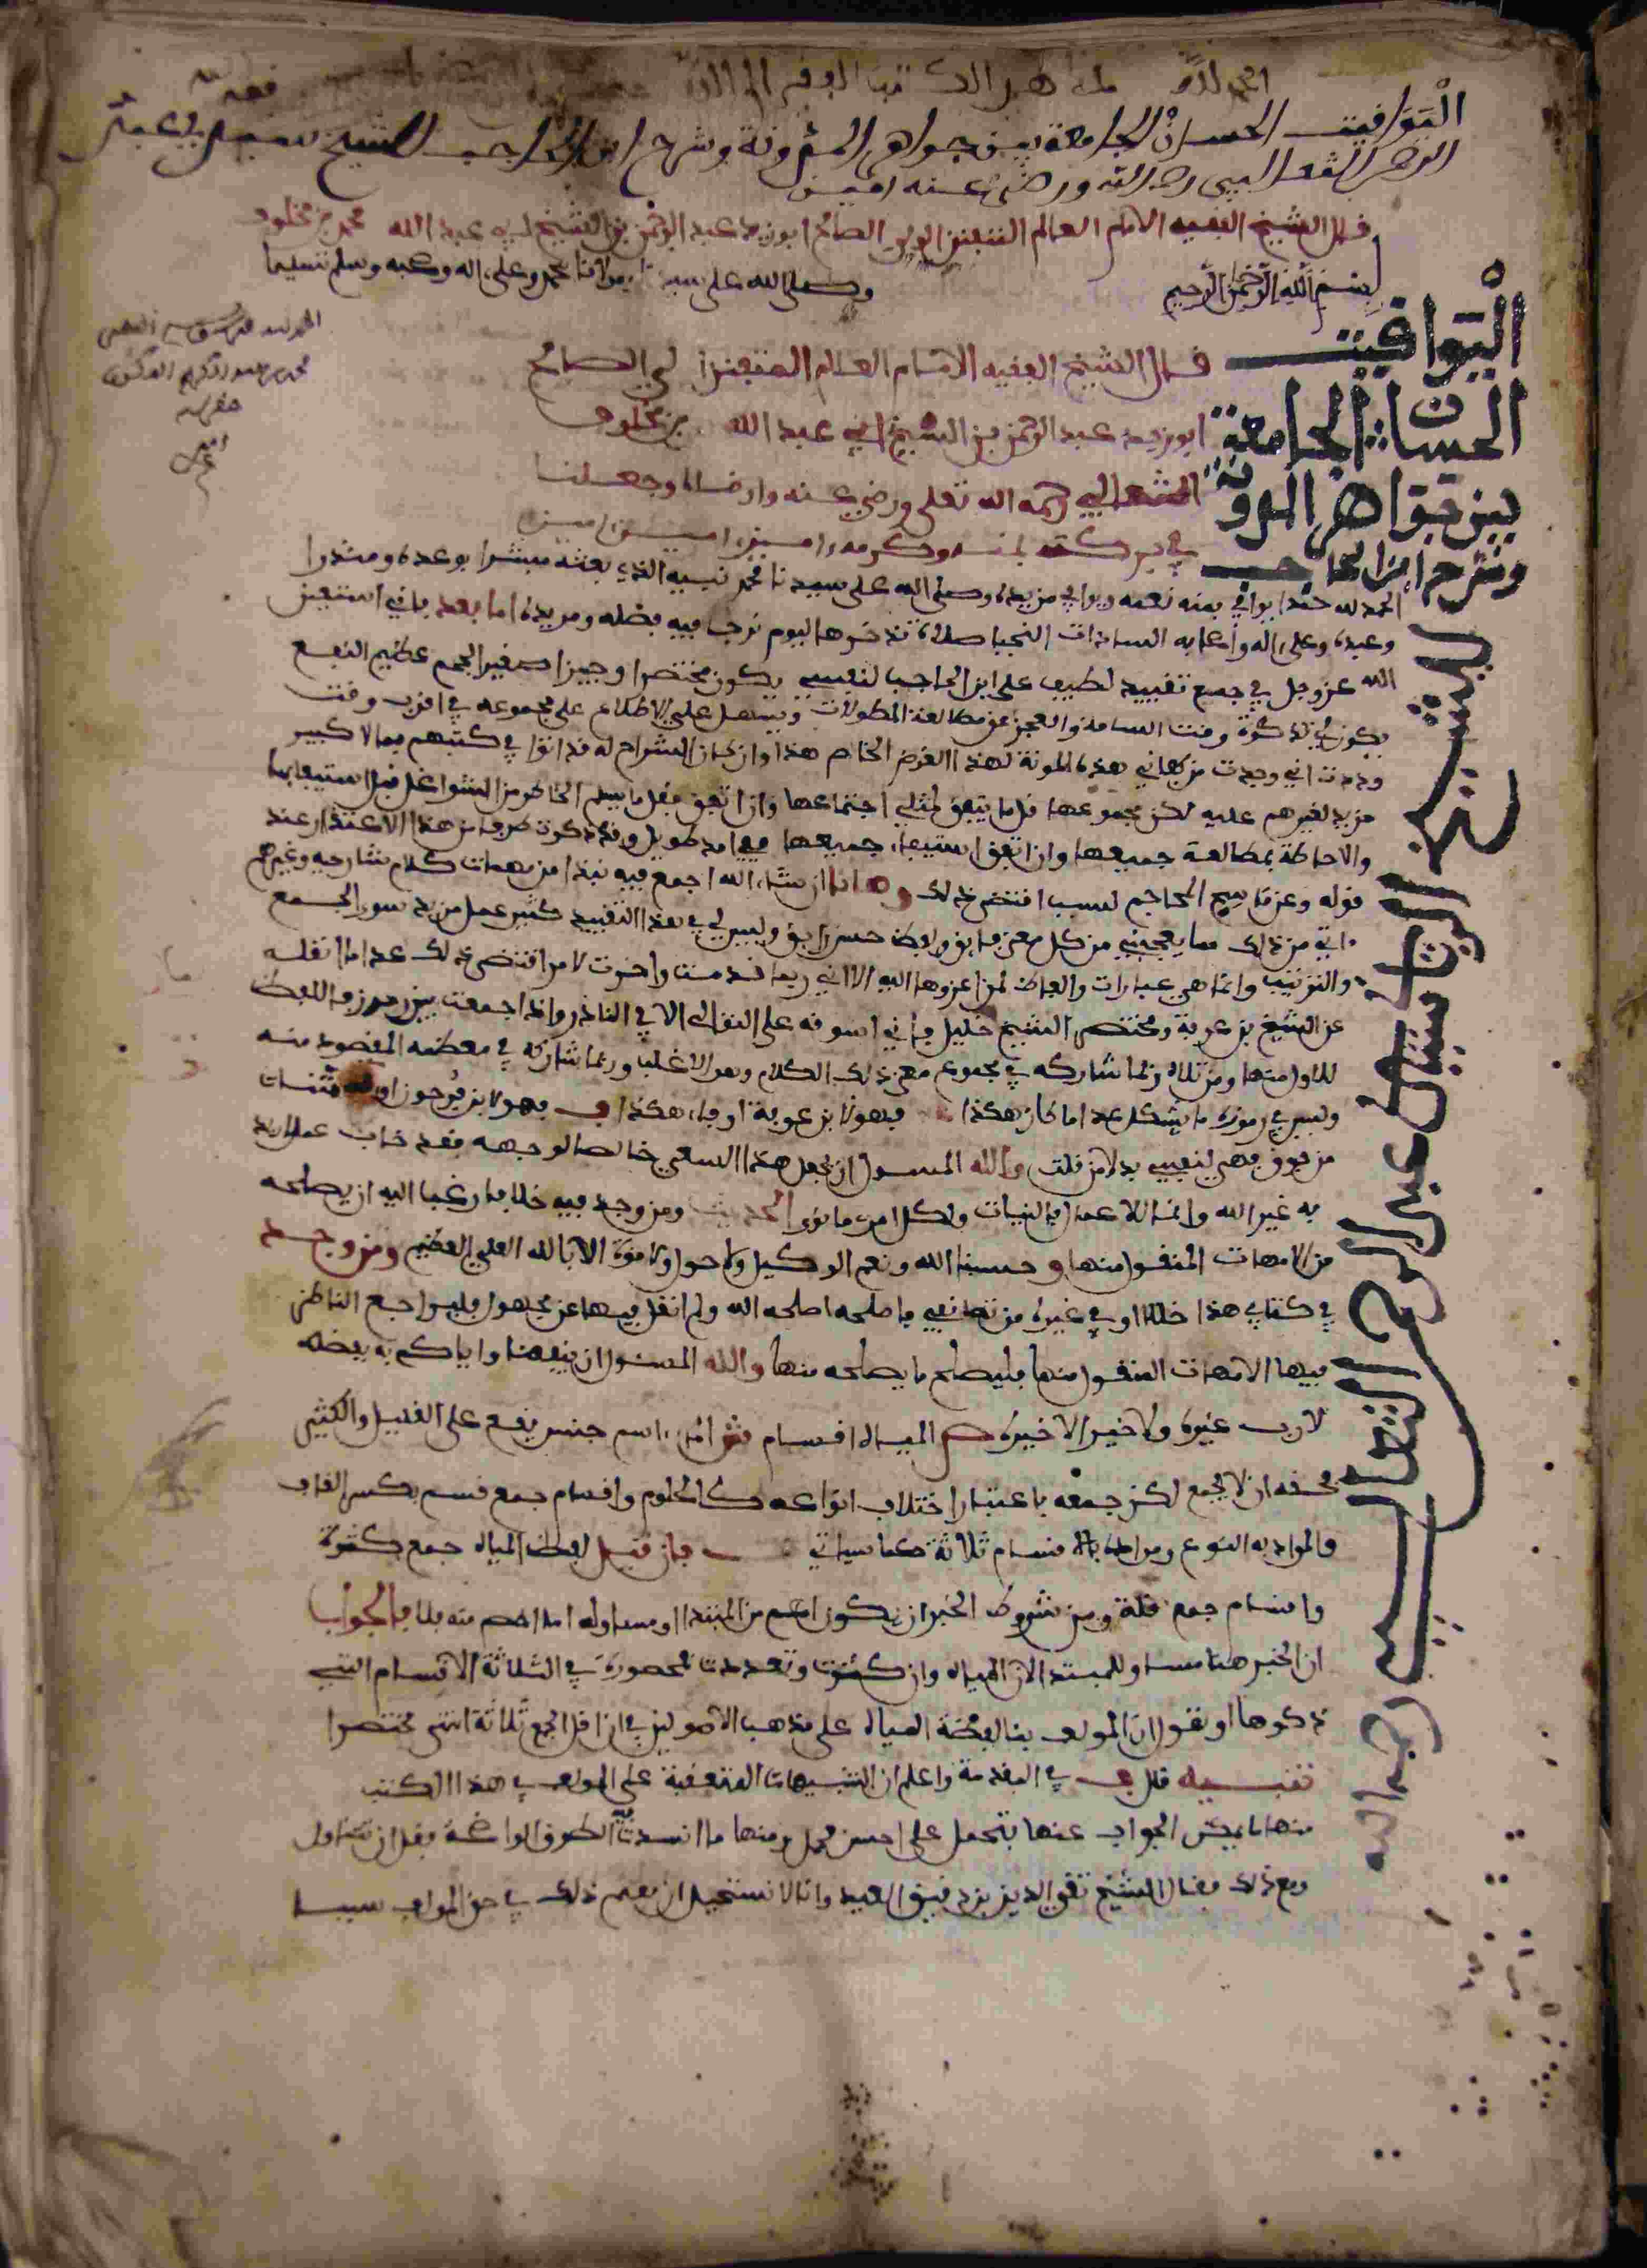 الحمد لله
اليواقيت الحسان الجامعة بين جواهر المدونة وشرح ابن الحاجب للشيخ سيدي عبد
الرحمن الثعالبي رحمه الله ورضي عنه امين
قال الشيخ الفقيه الامام العالم المتفنن الولي الصالح ابو زيد عبد الرحمن بن الشيخ ابي عبد الله محمد بن مخلوف
بسم الله الرحمن الرحيم وصلى الله على سيدنا ومولانا محمد وعلى اله وصحبه وسلم تسليما
اليواقيت
الحسان الجامعة
بين جواهر المدونة
وشرح ابن الحاجب
للشيخ
سيدي عبد الرحمن الثعالبي
رحمه الله
قال الشيخ الفقيه الامام العالم المتفنن الولي الصالح
ابو زيد عبد الرحمن بن الشيخ ابي عبد الله بن مخلوف
الثعالبي رحمه الله تعلى ورضي عنه وارضاه وجعلنا
في بركته بمنه وكرمه امين امين امين
الحمد لله حمدا يوافي بمنه نعمه ويوافي مزيده وصلى الله على سيدنا محمد نبيه الذي بعثه مبشرا بوعده ومنذرا
وعيده وعلى اله واصحابه السادات النجبا صلاة ندخرها ليوم نرجا فيه فضله ومزيده اما بعد فاني استعين
الله عز وجل في جمع تقييد لطيف على ابن الحاجب لنفسي يكون مختصرا وجيزا صغير الجرم عظيم النفع
يكون لي تذكرة وقت السامة والعجز عن مطالعة المطولات ويتسهل علي الاطلاع على مجموعه في اقرب وقت
وددت اني وجدت من كفاني هذه المونة لهذا الغرض الخاص هذا وان كان الشراح له قد اتوا في كتبهم بما لا كبير
مزيد لغيرهم عليه لكن مجموعها قل ما يتفق لمثلي اجتماعها وان اتفق فقل ما يسلم الخاطر من الشواغل قبل استيعابها
والاحاطة بمطالعة جميعها وان اتفق استيعاب جميعها ففي امد طويل وقد ذكرت طرفا من هذا الاعتذار عند
قوله وعرقا سبخ المحاجم لسبب اقتضى ذلك وها انا ان شاء الله اجمع فيه نبذا من مهمات كلام شارحيه وغيرهم
واتي من ذلك مما يعجبني من كل معنى فايق ولفظ حسن رايق وليس لي في هذا التقييد كثير عمل مزيد سوى الجمع
والترتيب وانما هي عبارات والفاظ لمن اعزوها اليه الا اني ربما قدمت واخرت لامر اقتضى ذلك عدا ما انقله
عن الشيخ بن عرفة ومختصر الشيخ خليل فاني اسوقه على التوالي الا في النادر واذا جمعت بين رمزين فاللفظ
للاول منهما ومن تلاه انما شاركه في مجموع معنى ذلك الكلام وهو الاغلب وربما شاركه في معظمه المقصود منه
وليس في رموزه ما يشكل عدا ما كان هكذا فهو لابن عرفة او فاء هكذا ف فهو لابن فرحون
من فوق فهي لنفسي بدلا من قلت والله المسول ان يجعل هذا السعي خالصا لوجهه فقد خاب عمل اريد
به غير الله وانما الاعمال بالنيات ولكل امرء ما نوى الحديث ومن وجد فيه خللا فارغبا اليه ان يصلحه
من الامهات المنقول منها وحسبنا الله ونعم الوكيل ولا حول ولا قوة الا بالله العلي العظيم ومن وجد
في كتابي هذا خللا او في غيره من تصانيفي فاصلحه اصلحه الله ولم انقل فيها عن مجهول فليراجع الناظر
فيها الامهات المنقول منها فليصلح ما يصلحه منها والله المسئول ان ينفعنا واياكم به بفضله
لا رب غيره ولا خير الا خيره ص المياه اقسام ش الماء اسم جنس يقع على القليل والكثير
فحقه ان لا يجمع لكن جمعه باعتبار اختلاف انواعه كالحلوم واقسام جمع قسم بكسر القاف
والمراد به النوع ومراده بالاقسام ثلاثة كما سياتي فان قيل لفظ المياه جمع كثرة
واقسام جمع قلة ومن شروط الخبر ان يكون اعم من المبتدا او مساو له اما اخص منه فلا فالجواب
ان الخبر هنا مساو للمبتدا لان المياه وان كثرت وتعددت محصورة في الثلاثة الاقسام التي
ذكرها او نقول ان المولف بنا لفظة المياه على مذهب الاصوليين في ان اقل الجمع ثلاثة انتهى مختصرا
تنبيه قال في المقدمة واعلم ان التنبيهات المتعقبة على المولف في هذا الكتب
منها ما يمكن الجواب عنها بتحمل على احسن محمل ومنها ما انسدت الطرق الواضحة فقل ان تتناول
ومع ذلك فقال الشيخ تقي الدين بن دقيق العيد وانا لا نستحيل ان يعم ذلك في حق المولف سيما